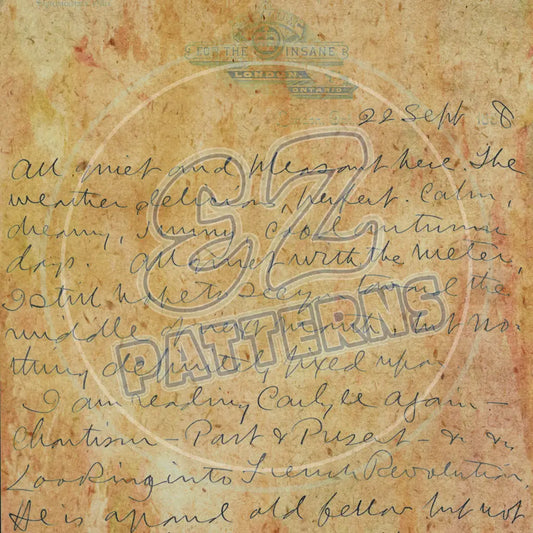 FOR THE INSANE
LONDON.
ONTARIO
22 Sept 188
All quiet and pleasant here. The
weather delicious, perfect. Calm,
dreamy, sunny cool autumn
days. All quiet with the meter,
I still hope to see you toward the
middle of next month, but no-
thing definitely fixed upon
I am reading Carlyle again –
Chartism – Past & Present – & &
Looking into French Revolution.
He is a grand old fellow but not
EZ
PATTERNS